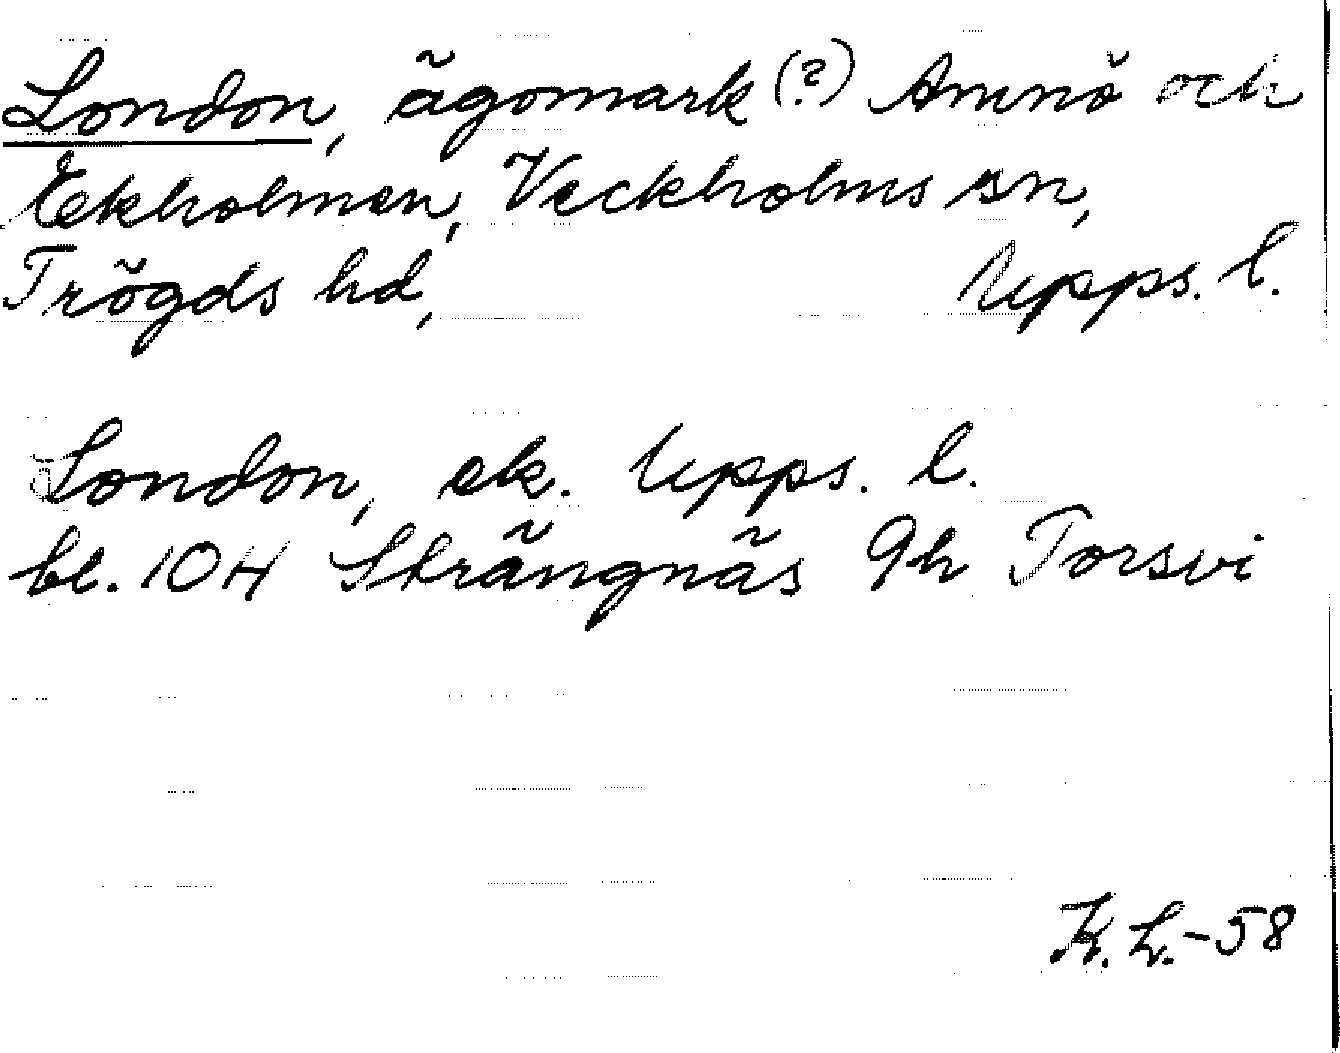 London, ägomark (?) Amnö och
Ekholmen, Veckholms sn,
Trögds hd, Upps. l.
London, ek. Upps. l.
bl. 104 Strängnäs 9h Torsvi
K. L. -58